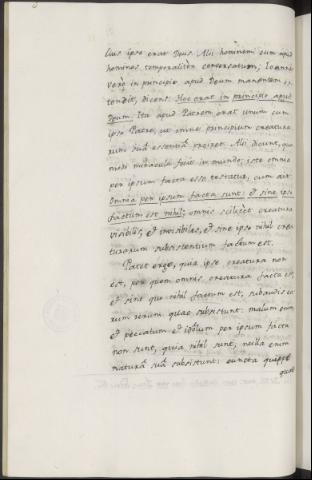 lius ipse erat Deus. Alii hominem eum apud
homines temporaliter conversatum; Joannes
vero in principio apud Deum manentem os-
tendit, dicens: Hoc erat in principio apud
Deum. Ita apud Patrem erat unum cum
ipso Patre, ut sine principium creatura-
rum sua essentia Alii dicunt, quae
modi miracula fecit in mundo; iste omne
per ipsum facta esse testatur, cum ait:
Omnia per ipsum facta sunt: et sine ipso
factum est nihil; omnis scilicet creatura
visibilis, et invisibilis, et sine ipso nihil crea-
turarum subsistentium factum est.
Patet ergo, quia ipse creatura non
est, per quem omnis creatura facta est,
et sint quo nihil factum est, subaudis ea-
rum rerum, quae subsistunt: malum enim
et peccatum et idolum per ipsum facta
non sunt, quia nihil sunt; nulla enim
natura sua subsistunt: cuncta quippe
quae